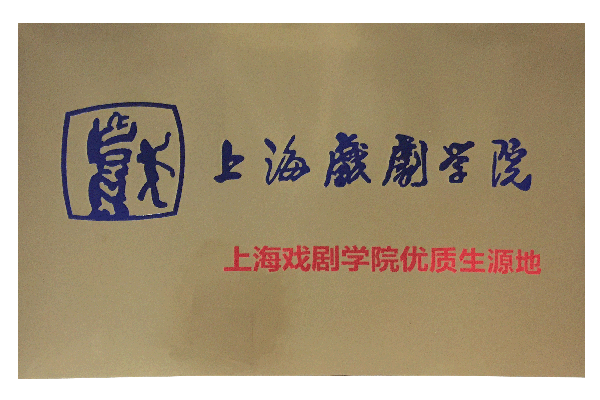 上海戲劇学院
上海戏剧学院优质生源地